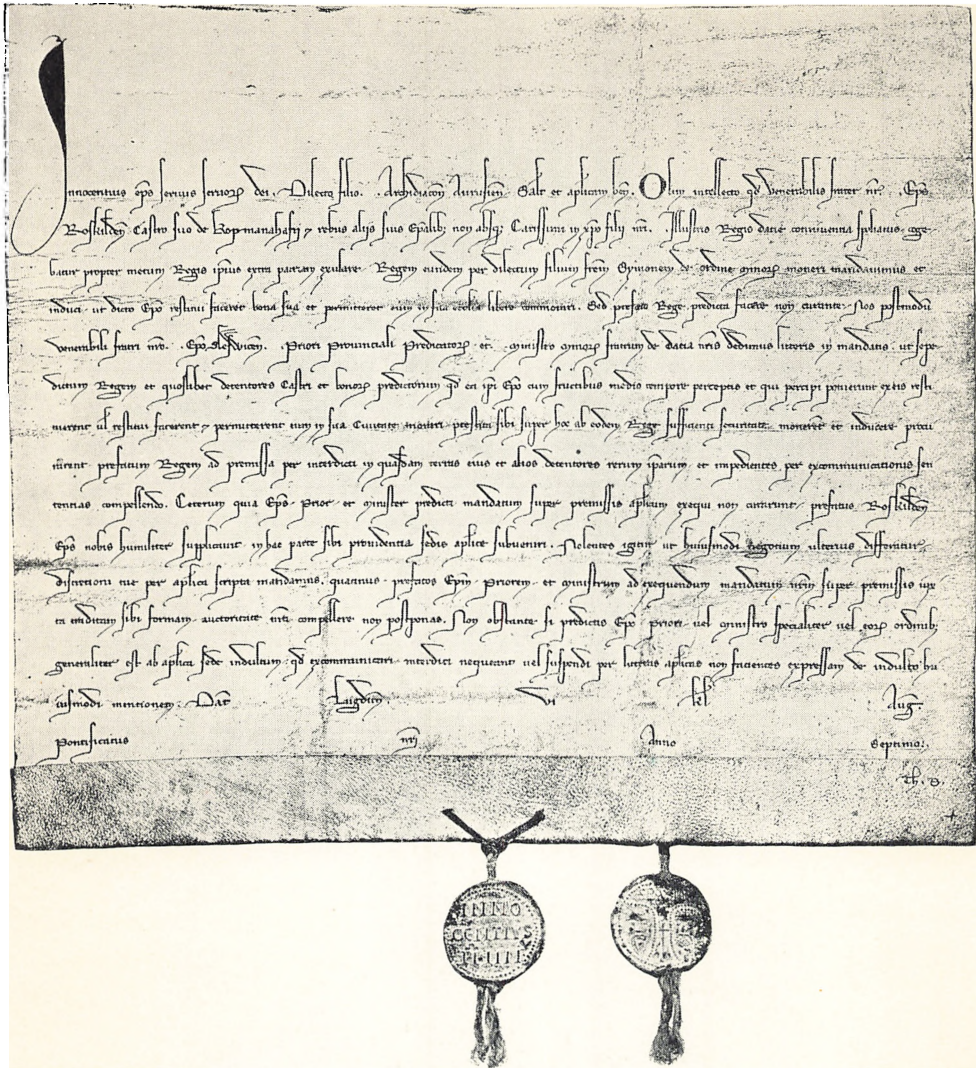 Innocentius eps servus servorꝝ dei. Dilecto filio .. Archidiacoñ Arusieñ. Salt et aplicam beñ. Olim intellecto qd venerabilis frater nr̃ .. Eps
Roskildeñ Castro suo de Kopmanahafn ⁊ rebus alijs suis Epalibꝫ non absqꝫ Carissimi in xp̃o filij nr̃i .. Illustris Regis datie conniventia spoliatus coge-
batur propter metum Regis ipius extra patriam exulare. Regem eundem per dilectum filium frem Symonem de ordine minorꝝ moneri mandavimus et
induci ut dicto Epo restitui faceret bona sua et permitteret eum in sua ecclia libere commorari. Sed prefato Rege predicta facere non curante. Nos postmodũ
venerabili fratri nr̃o .. Epo Sleswiceñ. .. Priori Provinciali Predicatorꝝ et .. ministro minorꝝ fratrum de datia nr̃is dedimus litteris in mandatis ut sepe-
dictum Regem et quoslibet detentores Castri et bonorꝝ predictorum qd ea ipi Epo cum fructibus medio tempore perceptis et qui percipi potuerunt ex eis resti
tuerent ul restitui facerent ⁊ permitterent eum in sua Civitate morari prestita sibi super hoc ab eodem Rege sufficienti securitate monerẽt et inducere procu
rarent prefatum Regem ad premissa per interdicti in quasdam terras eius et alios detentores rerum iparum et impedientes per excommunicationis sen
tentias compellendo. Ceterum quia Eps Prior et minister predicti mandatum super premissis aplicum exequi non curarunt prefatus Roskildeñ
Eps nobis humiliter supplicavit in hac parte sibi providentia sedis aplice subveniri. Nolentes igitur ut huiusmodi negotium ulterius differatur
discretioni tue per aplica scripta mandamus quatinus prefatos Epm Priorem et ministrum ad exequendum mandatum nr̃m super premissis iux
ta traditam sibi formam auctoritate nr̃a compellere non postponas. Non obstante si predictis Epo Priori vel ministro specialiter vel eorꝝ ordinibꝫ
generaliter est ab aplica sede indultum qd excommunicari interdici nequeant vel suspendi per litteras aplicas non facientes expressam de indulto hu
iusmodi mentionem. Dat Lugduñ. VI kl Aug.
Pontificatus nr̃i Anno Septimo.
Th. S.
INNO
CENTIVS
PP·IIII